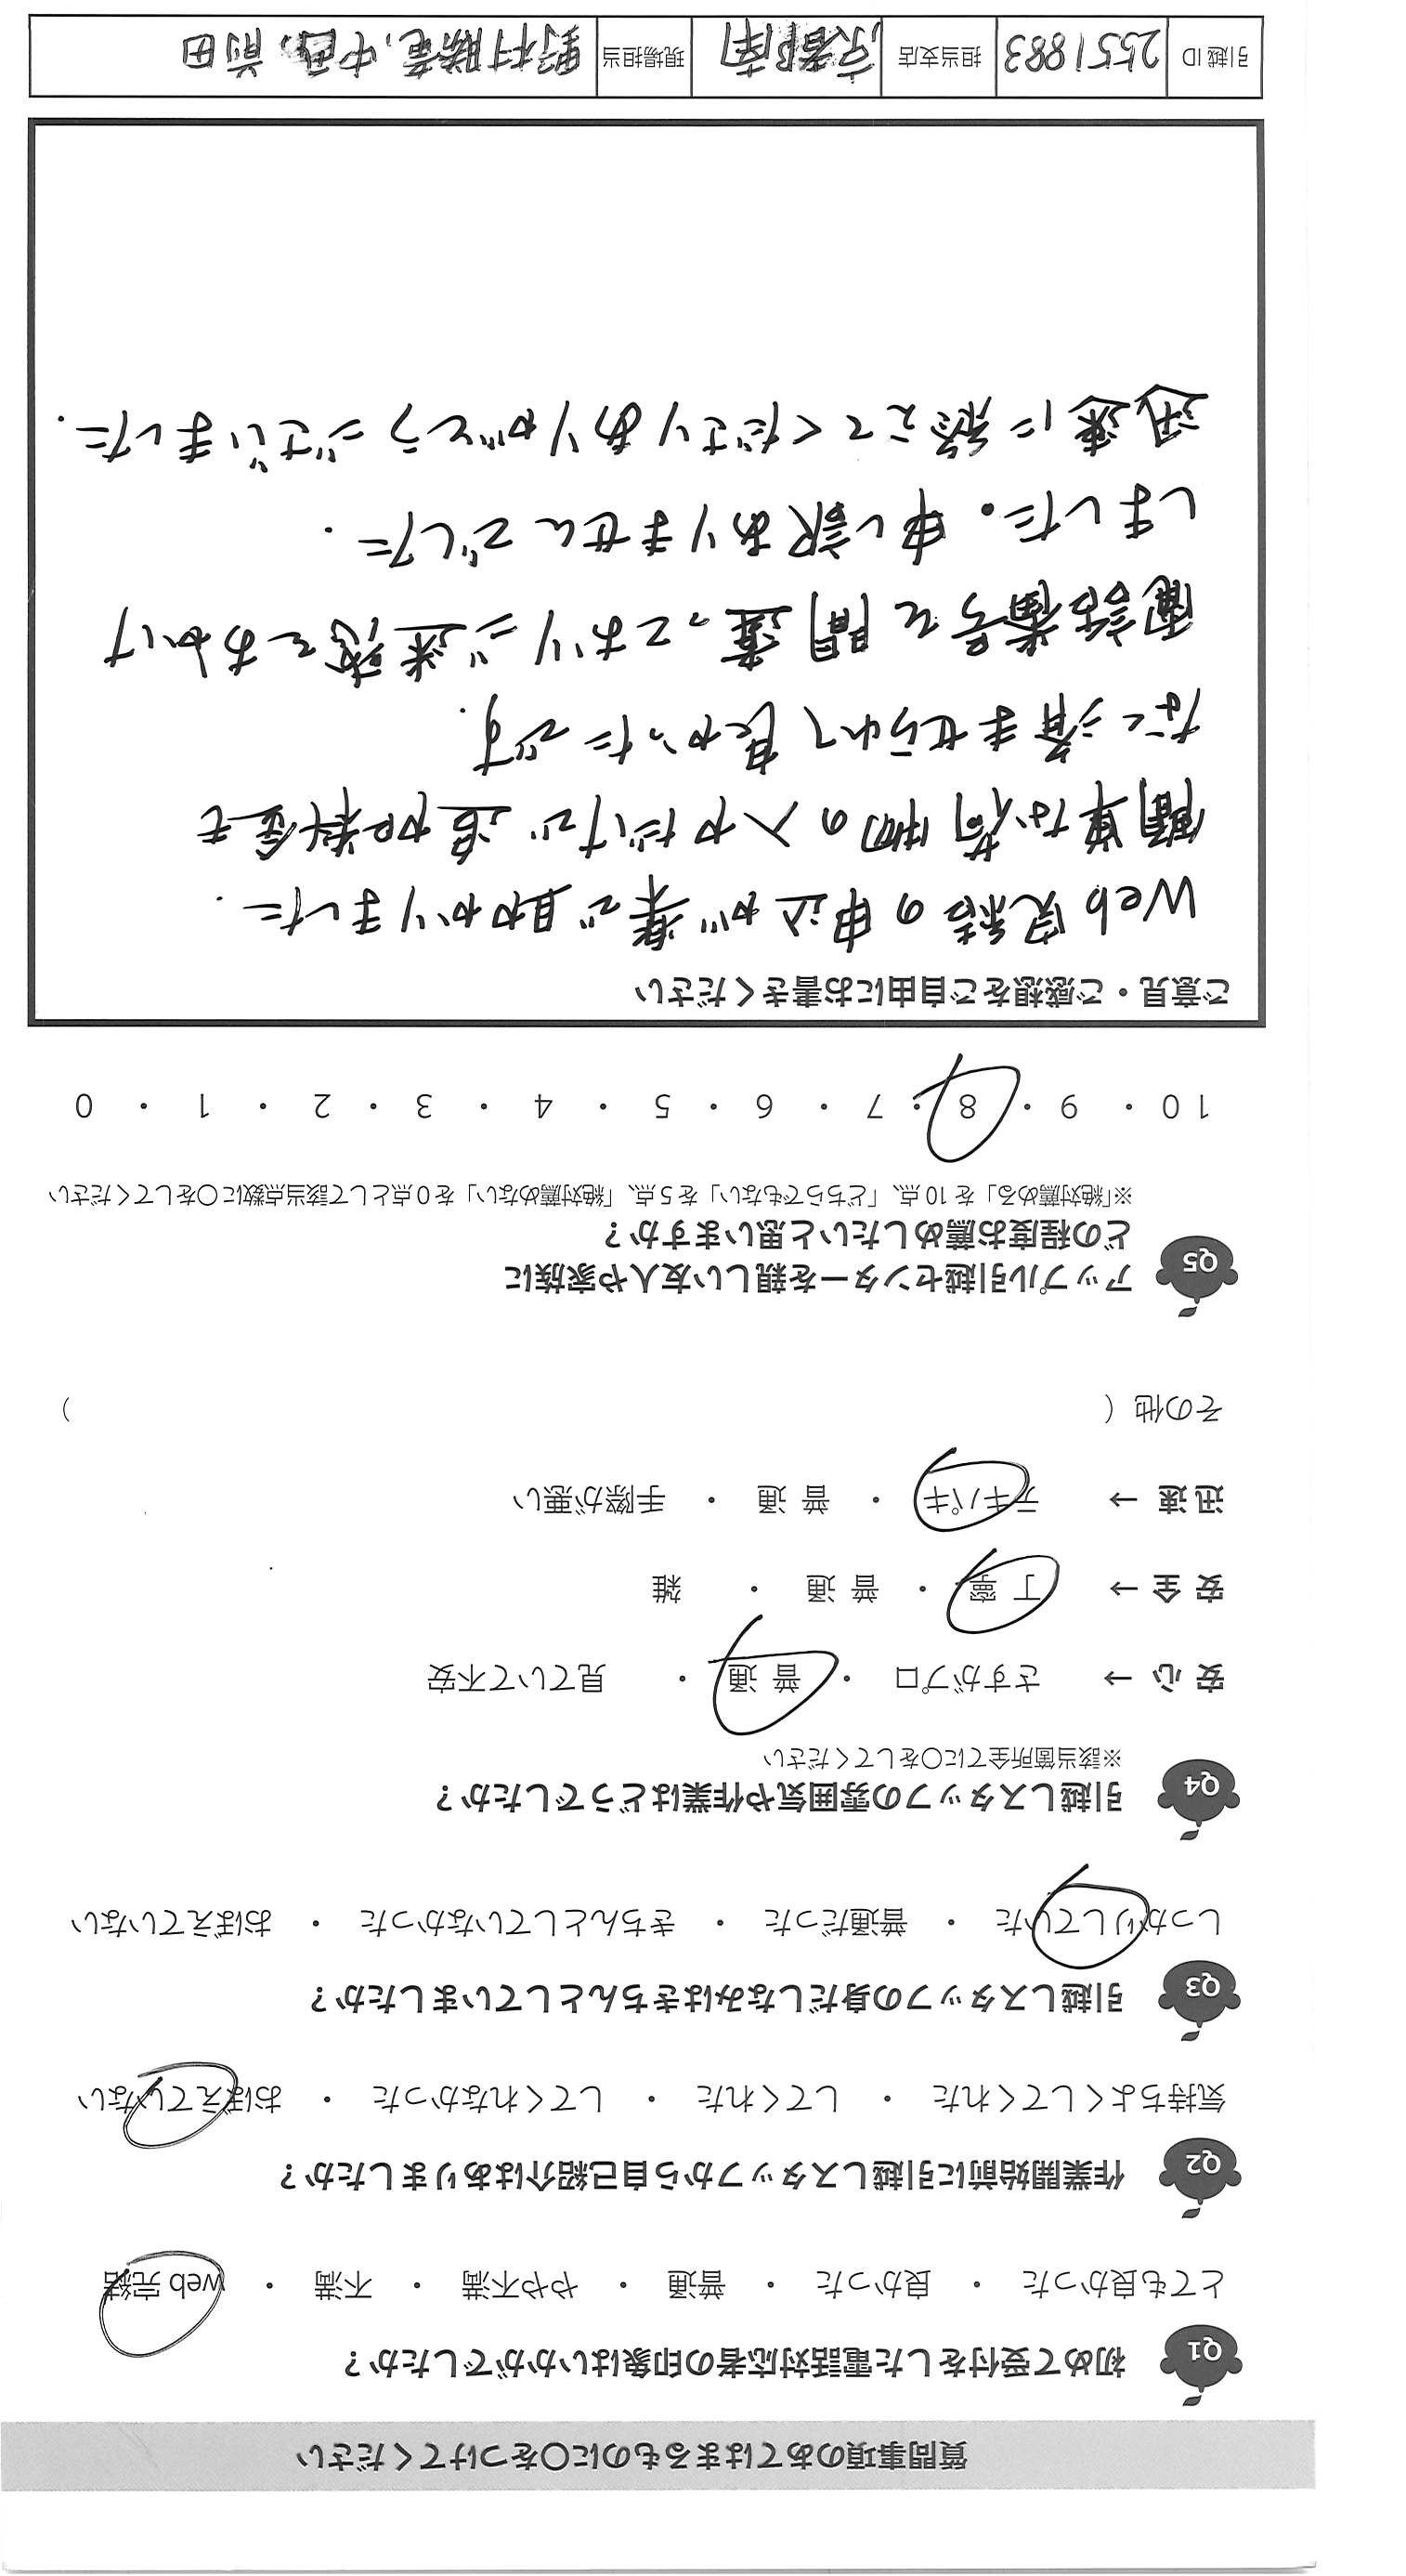 質問事項のあてはまるものに〇をつけてください
Q1 初めて受付をした電話対応者の印象はいかがでしたか？
とても良かった ・ 良かった ・ 普通 ・ やや不満 ・ 不満 ・ web 完結
Q2 作業開始前に引越しスタッフから自己紹介はありましたか？
気持ちよくしてくれた ・ してくれた ・ してくれなかった ・ おぼえていない
Q3 引越しスタッフの身だしなみはきちんとしていましたか？
しっかりしていた ・ 普通だった ・ きちんとしていなかった ・ おぼえていない
Q4 引越しスタッフの雰囲気や作業はどうでしたか？
※該当箇所全てに〇をしてください
安心 → さすがプロ ・ 普通 ・ 見ていて不安
安全 → 丁寧 ・ 普通 ・ 雑
迅速 → テキパキ ・ 普通 ・ 手際が悪い
その他（ ）
Q5 アップル引越センターを親しい友人や家族に
どの程度お薦めしたいと思いますか？
※「絶対薦める」を 10 点、「どちらでもない」を 5 点、「絶対薦めない」を 0 点として該当点数に〇をしてください
10 ・ 9 ・ 8 ・ 7 ・ 6 ・ 5 ・ 4 ・ 3 ・ 2 ・ 1 ・ 0
ご意見・ご感想をご自由にお書きください
Web完結の申込が楽で助かりました.
簡単な荷物の入力だけで追加料金も
なく済ませられて良かったです.
電話番号を間違っておりご迷惑をおかけ
しました。申し訳ありませんでした.
迅速に終えてくださりありがとうございました.
引越 ID 2551883 担当支店 京都南 現場担当 野村勝竜, 中西, 前田